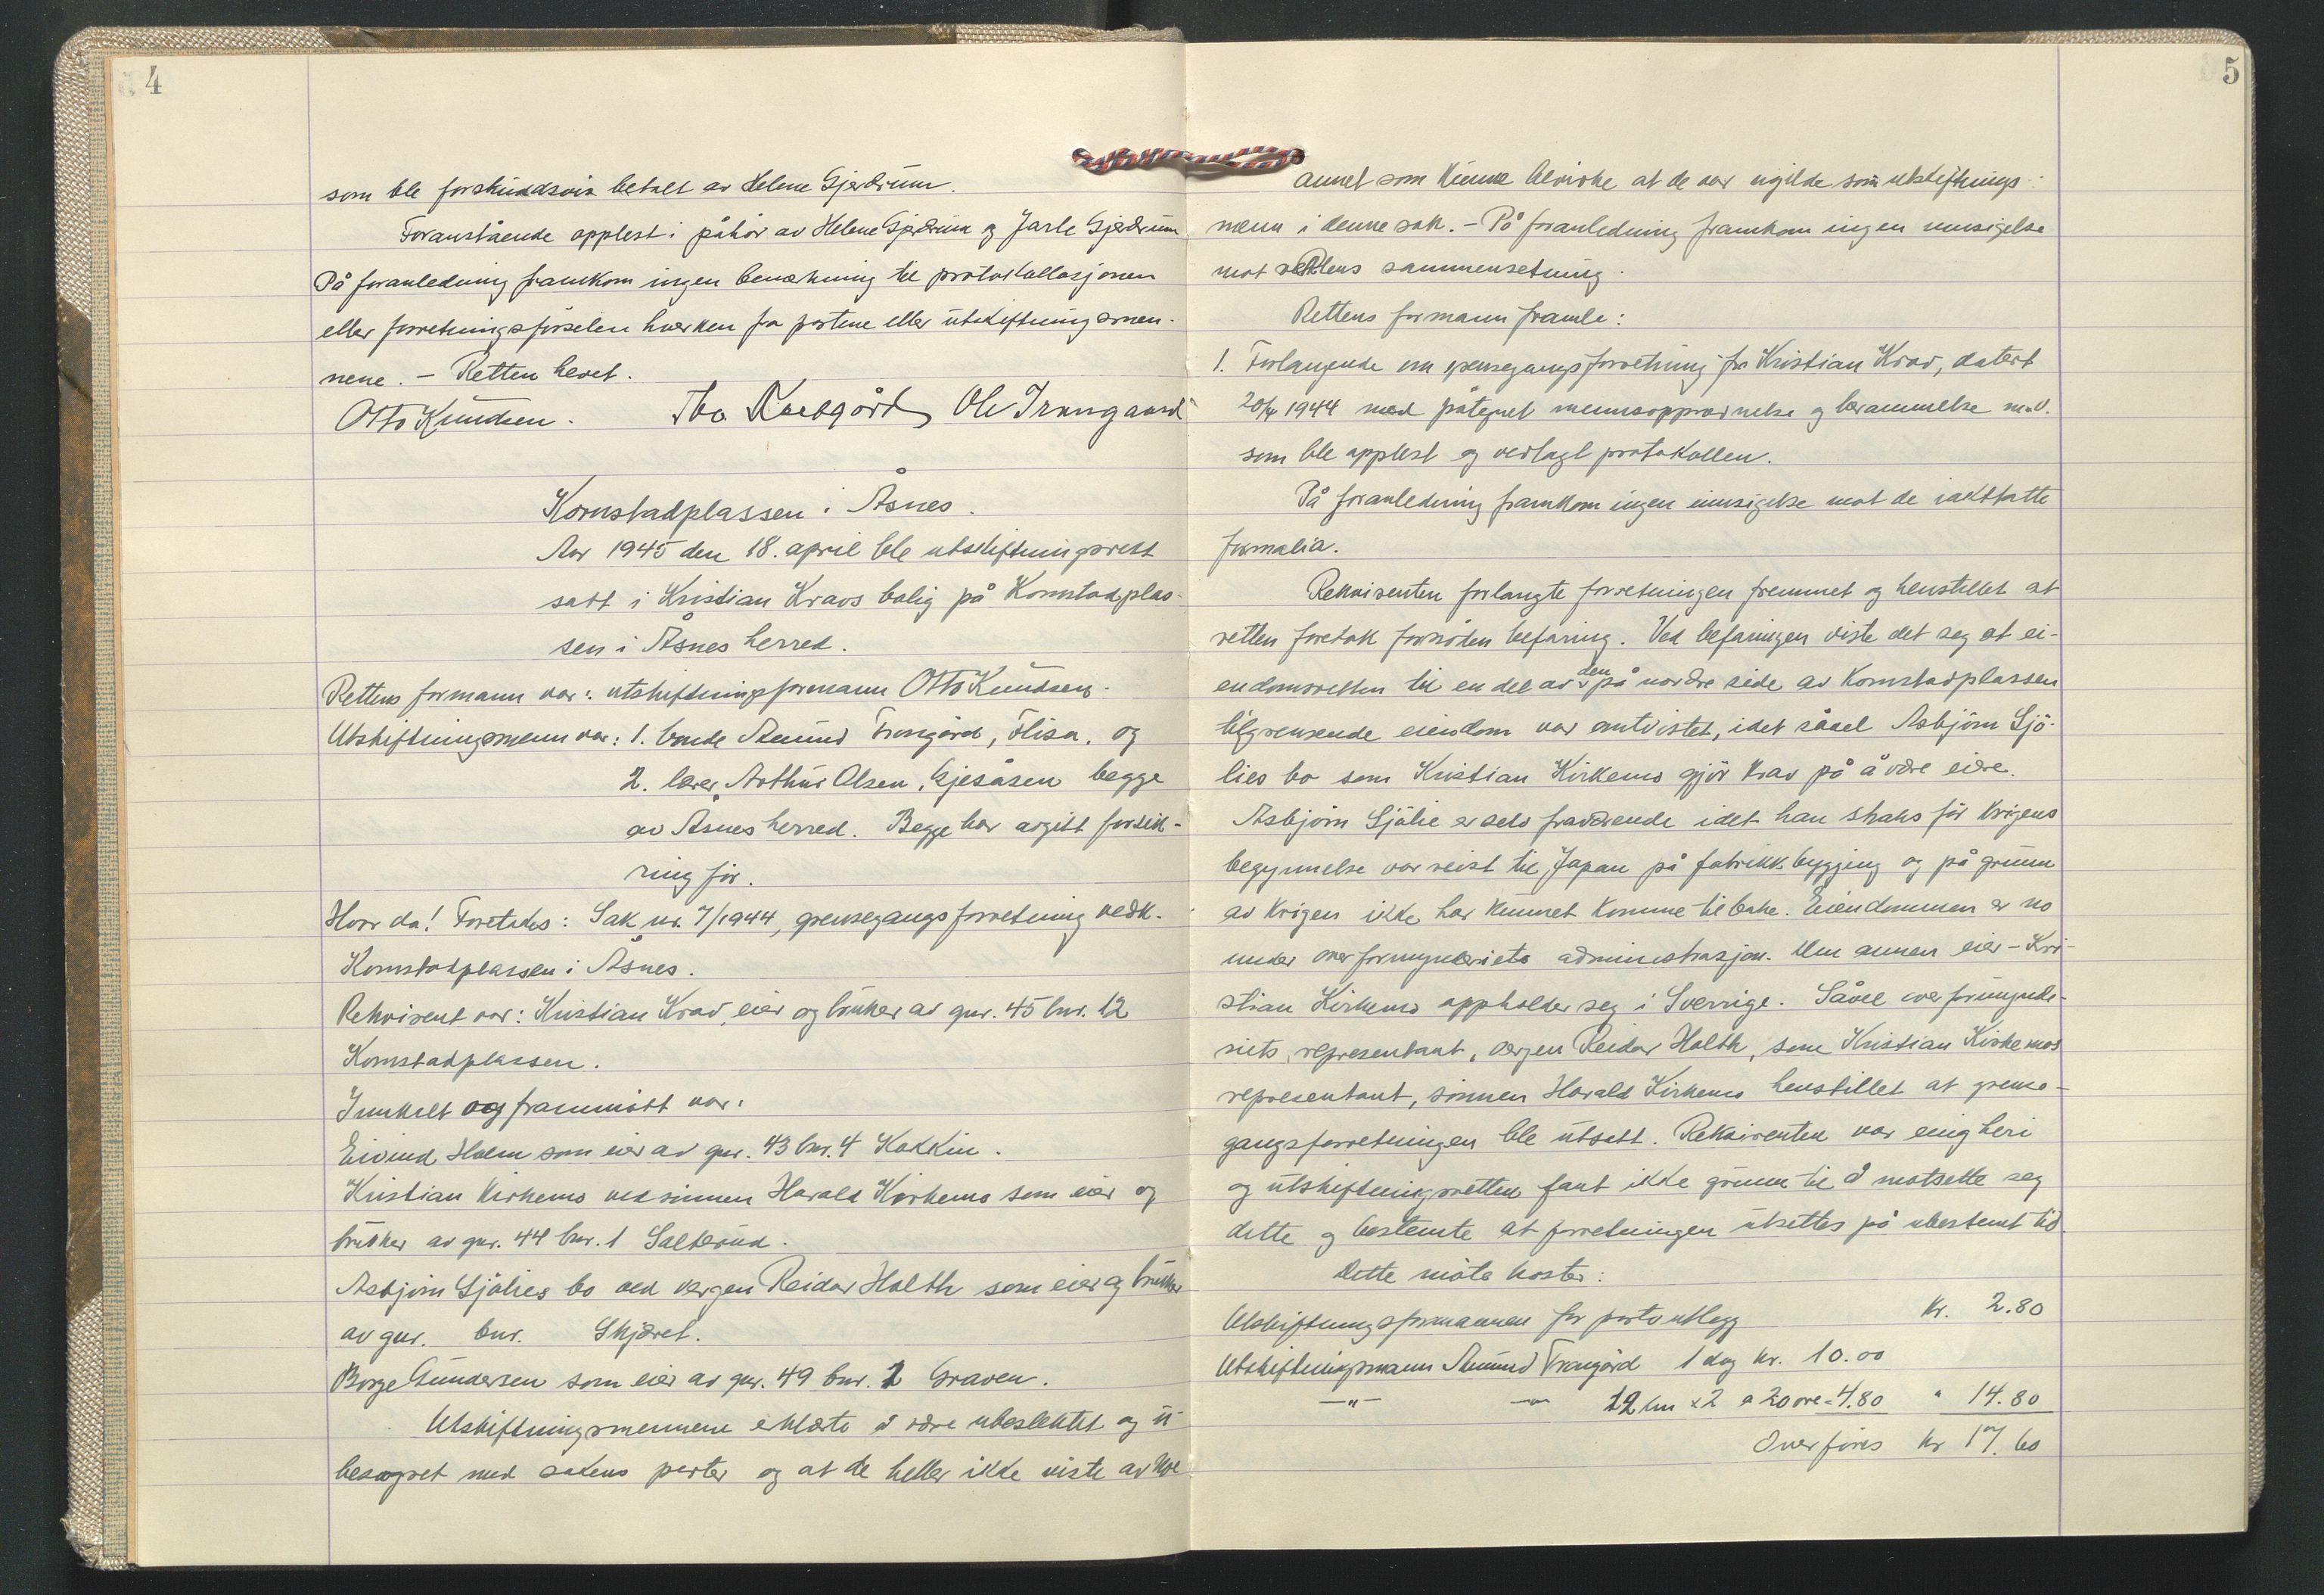 4
som ble forskuddsvis betalt av Helene Gjerdrum.
Foranstående opplest i påhör av Helene Gjerdrum og Jarle Gjerdrum
På foranledning framkom ingen bemerkning til protokollasjonen
eller forretningsförselen hverken fra partene eller utskiftningsmen-
nene. - Retten hevet.
Otto Knudsen. Ole Trangaard
Kornstadplassen i Åsnes.
Aar 1945 den 18. april ble utskiftningsrett
satt i Kristian Kravs bolig på Kornstadplas-
sen i Åsnes herred.
Rettens formann var: utskiftningsformann Otto Knudsen.
Utskiftningsmenn var: 1. bonde Amund Trangård, Flisa, og
2. lærer Arthur Olsen, Gjesåsen begge
av Åsnes herred. Begge har avgitt forsik-
ring för.
Hvor da! Foretokes: Sak nr. 7/1944, grensegangsforretning vedk.
Kornstadplassen i Åsnes.
Rekvirent var: Kristian Krav, eier og bruker av gnr. 45 bnr. 12
Kornstadplassen.
Innkalt og frammött var:
Eivind Holen som eier av gnr. 43 bnr. 4 Kokkin.
Kristian Kirkemo ved sönnen Harald Kirkemo som eier og
bruker av gnr. 44 bnr. 1 Salterud.
Asbjörn Sjölies bo ved vergen Reidar Holth som eier og bruker
av gnr. bnr. Skjæret.
Borge Gundersen som eier av gnr. 49 bnr. 1 Graven.
Utskiftningsmennene erklærte å være ubeslektet og u-
besvogret med sakens parter og at de heller ikke viste av noe
5
annet som kunne bevirke at de var ugilde som utskiftnings-
menn i denne sak. - På foranledning framkom ingen innsigelse
mot rettens sammensetning.
Rettens formann framla:
1. Forlangende om grensegangsforretning fra Kristian Krav, datert
1944 med påtegnet mennsoppnevnelse og berammelse m.v.
som ble opplest og vedlagt protokollen.
På foranledning framkom ingen innsigelse mot de iakttatte
formalia.
Rekvirenten forlangte forretningen fremmet og henstillet at
retten foretok fornöden befaring. Ved befaringen viste det seg at ei-
endomsretten til en del av den på nordre side av Kornstadplassen
tilgrensende eiendom var omtvistet, idet såvel Asbjörn Sjö-
lies bo som Kristian Kirkemo gjör krav på å være eiere.
Asbjörn Sjölie er selv fraværende idet han straks för krigens
begynnelse var reist til Japan på fabrikkbygging og på grunn
av krigen ikke har kunnet komme tilbake. Eiendommen er no
under overformynderiets administrasjon. Den annen eier - Kri-
stian Kirkemo oppholder seg i Sverrige. Såvel overformynde-
riets representant, vergen Reidar Holth, som Kristian Kirkemos
representant, sönnen Harald Kirkemo henstillet at grense-
gangsforretningen ble utsatt. Rekvirenten var enig heri
og utskiftningsretten fant ikke grunn til å motsette seg
dette og bestemte at forretningen utsettes på ubestemt tid.
Dette möte koster:
Utskiftningsformannen for portoutlegg Kr. 2.80
Utskiftningsmann Amund Trangård 1 dag kr. 10.00
-"- -"- 12 km x 2 a 20 öre = 4.80 " 14.80
Overföres kr 17.60